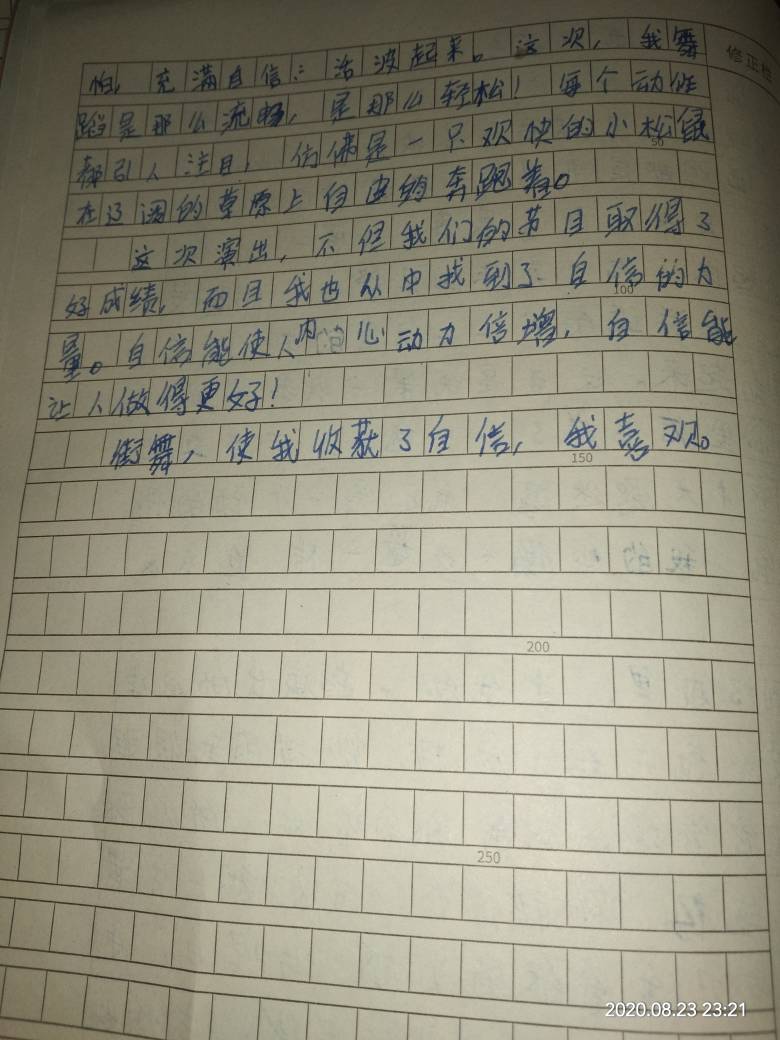 怕，充满自信，活波起来。这次，我舞
蹈是那么流畅，是那么轻松！每个动作
都引人注目，仿佛是一只欢快的小松鼠
在辽阔的草原上自由的奔跑着。
这次演出，不但我们的节目取得了
好成绩，而且我也从中找到了自信的力
量。自信能使人内心动力倍增，自信能
让人做得更好！
街舞，使我收获了自信，我喜欢。
修正栏
50
100
150
200
250
2020.08.23 23:21